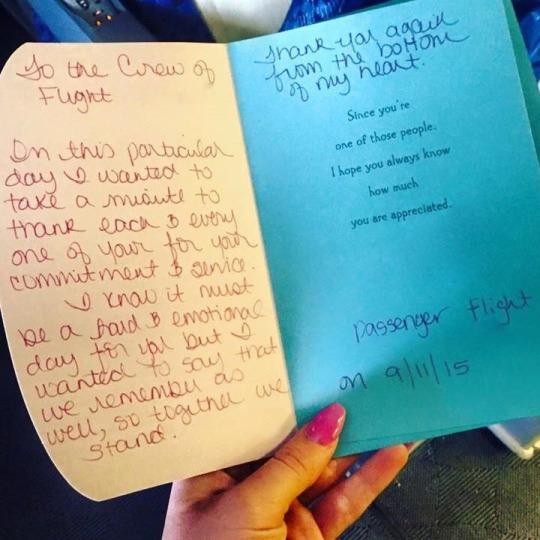 To the Crew of
Flight
On this particular
day I wanted to
take a minute to
thank each & every
one of your for your
commitment & service.
I know it must
be a hard & emotional
day for you but I
wanted to say that
we remember as
well, so together we
stand.
Thank you again
from the bottom
of my heart.
Since you're
one of those people,
I hope you always know
how much
you are appreciated.
passenger Flight
on 9/11/15